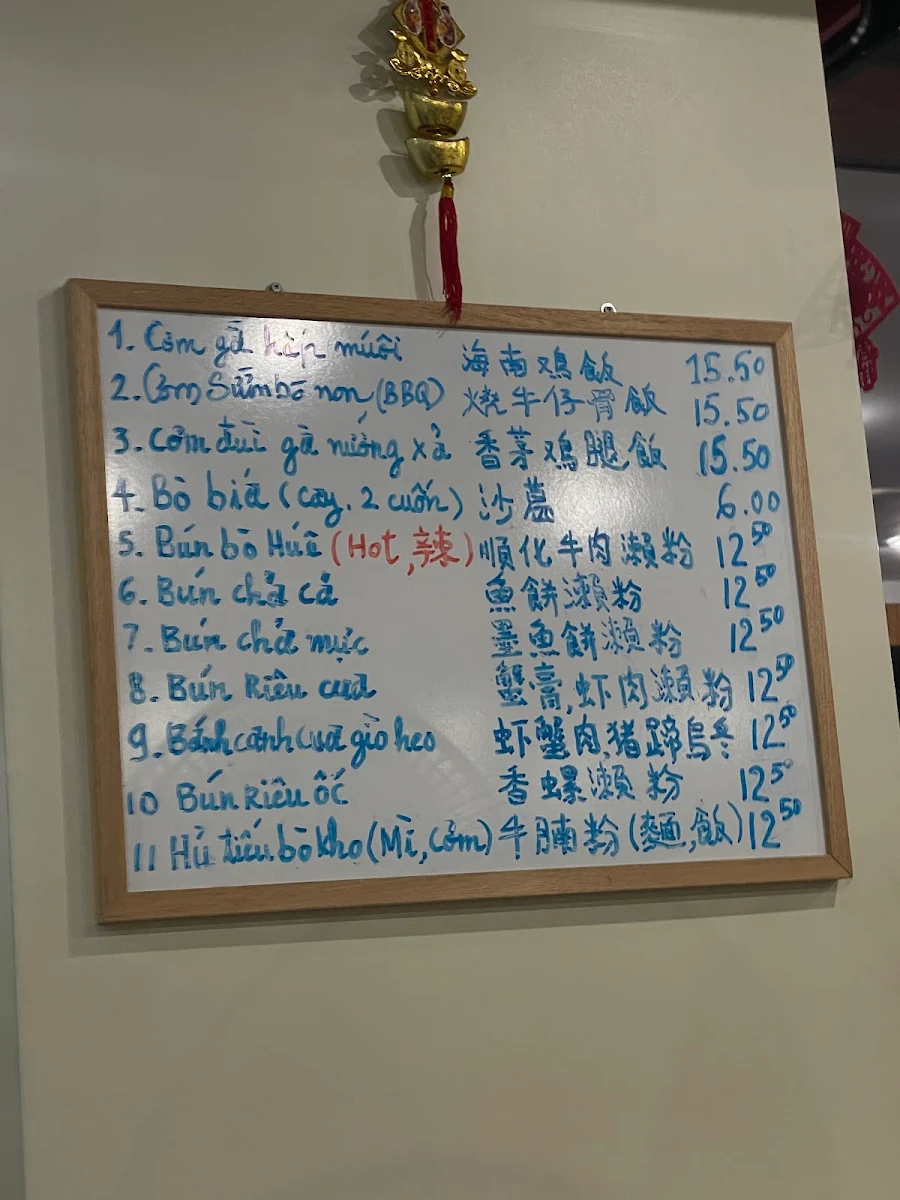 1. Cơm gà hấp muối 海南鸡飯 15.50
2. Cơm Sườn bò non (BBQ) 燒牛仔骨飯 15.50
3. Cơm đùi gà nướng xả 香茅鸡腿飯 15.50
4. Bò bía (cay, 2 cuốn) 沙葛 6.00
5. Bún bò Huế (Hot, 辣) 順化牛肉瀨粉 12.50
6. Bún chả cá 魚餅瀨粉 12.50
7. Bún chả mực 墨魚餅瀨粉 12.50
8. Bún Riêu cua 蟹膏,虾肉瀨粉 12.50
9. Bánh canh cua giò heo 虾蟹肉,猪蹄烏冬 12.50
10 Bún Riêu ốc 香螺瀨粉 12.50
11 Hủ tiếu bò kho (Mì, Cơm) 牛腩粉 (麵,飯) 12.50